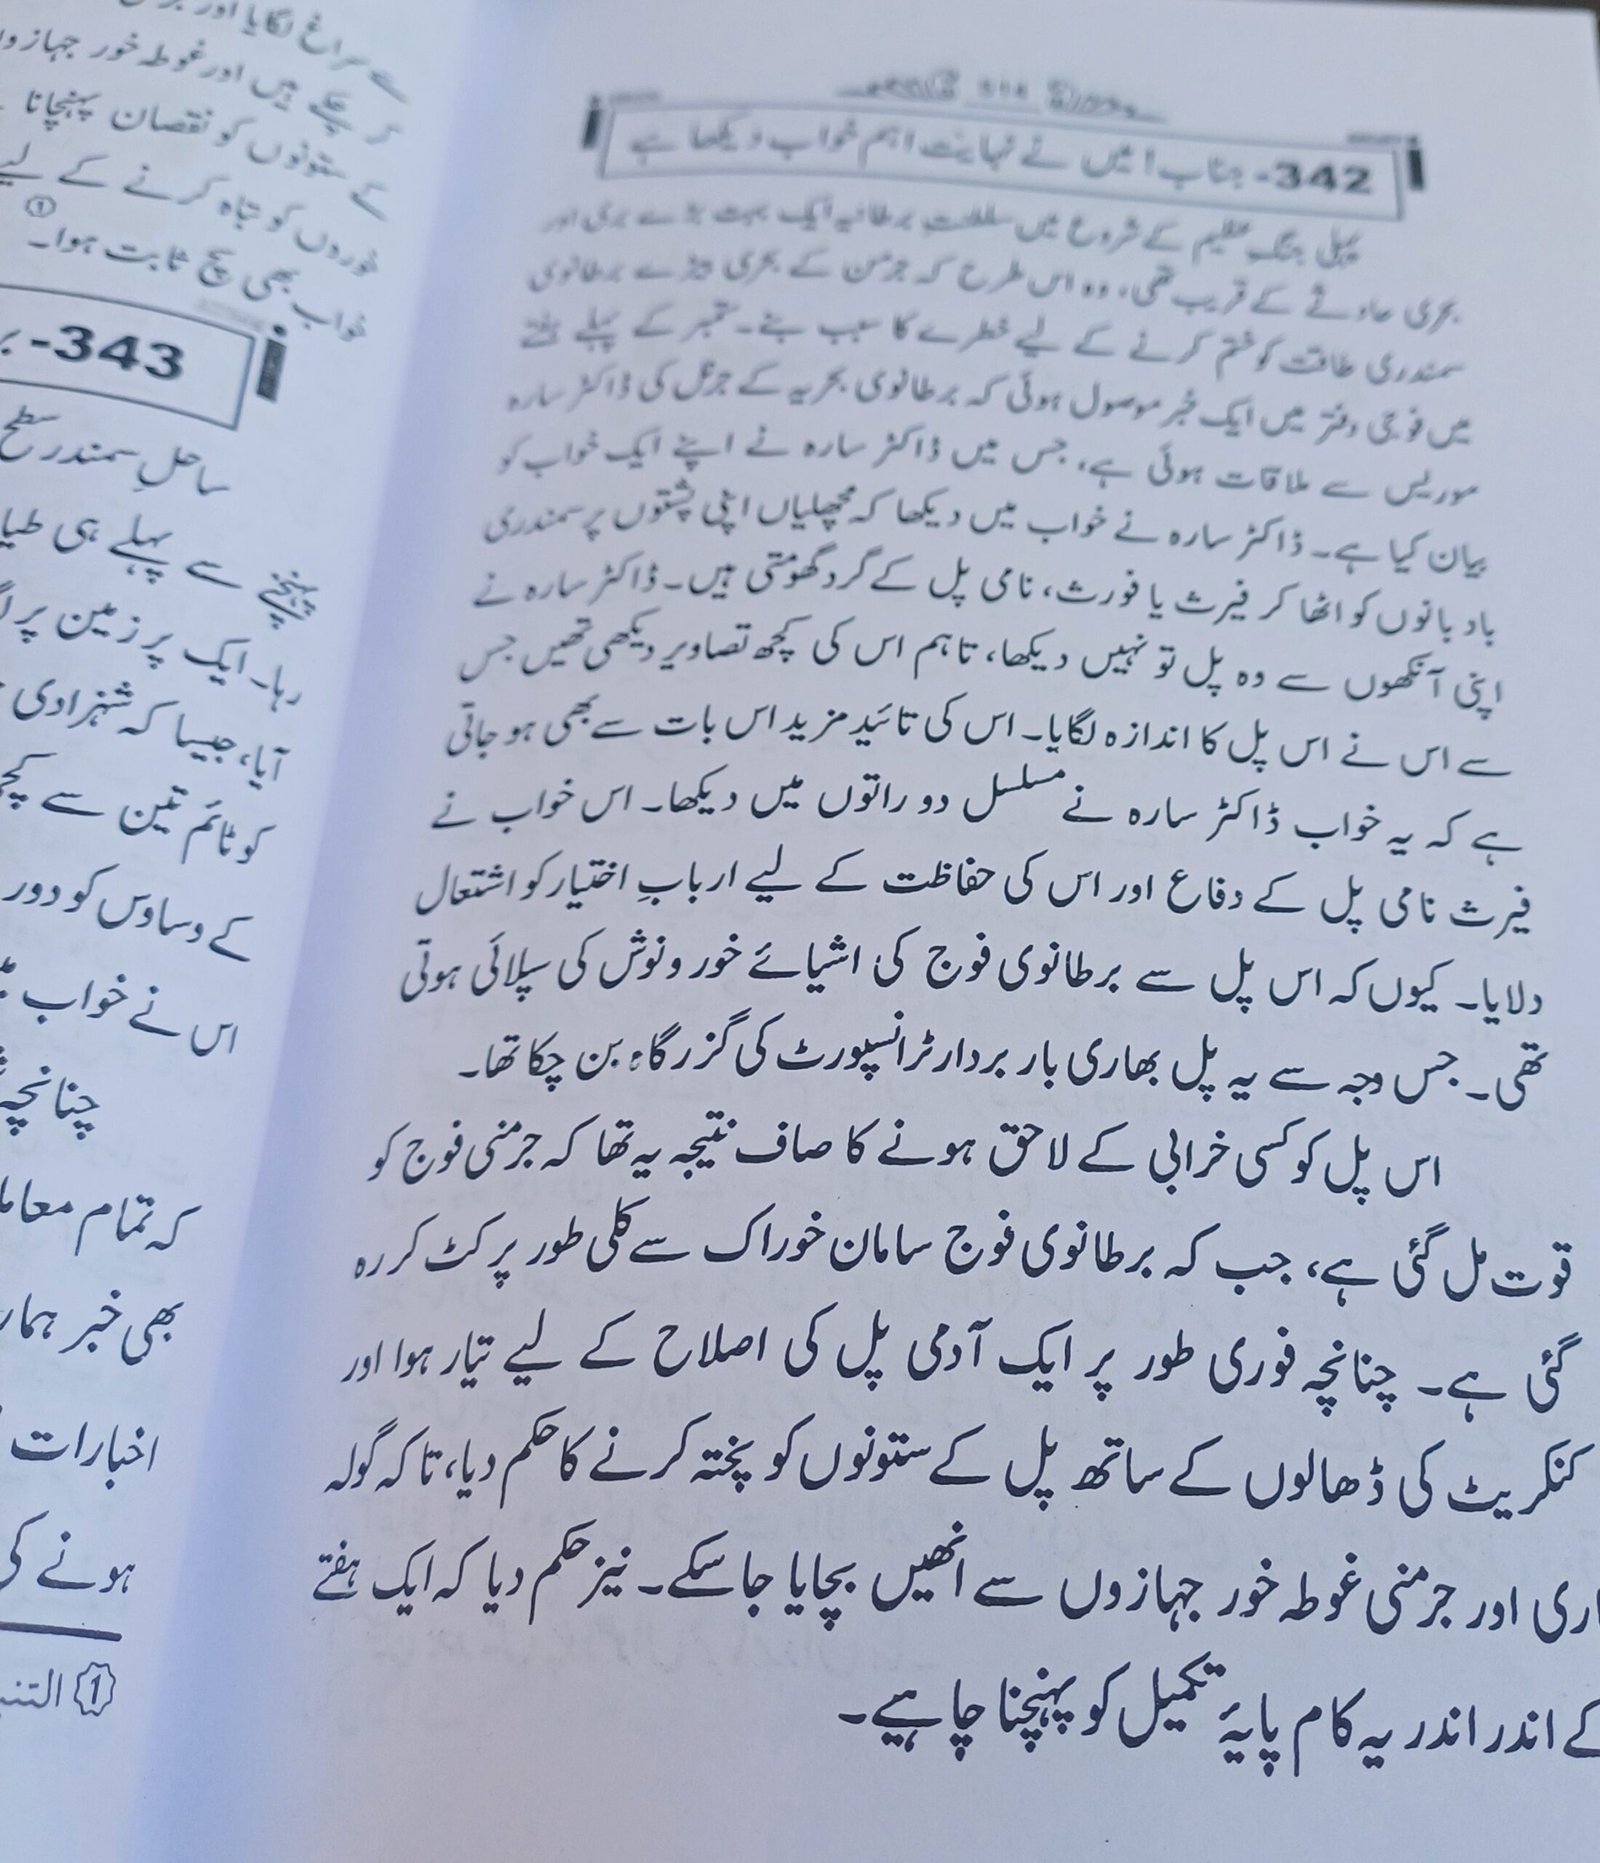 342- جناب! میں نے نہایت اہم خواب دیکھا ہے
پہلی جنگِ عظیم کے شروع میں سلطنتِ برطانیہ ایک بہت بڑے بری اور
بحری حادثے کے قریب تھی، وہ اس طرح کہ جرمن کے بحری بیڑے برطانوی
سمندری طاقت کو ختم کرنے کے لیے خطرے کا سبب بنے۔ ستمبر کے پہلے ہفتے
میں فوجی دفتر میں ایک خبر موصول ہوئی کہ برطانوی بحریہ کے جرنل کی ڈاکٹر سارہ
موریس سے ملاقات ہوئی ہے، جس میں ڈاکٹر سارہ نے اپنے ایک خواب کو
بیان کیا ہے۔ ڈاکٹر سارہ نے خواب میں دیکھا کہ مچھلیاں اپنی پشتوں پر سمندری
بادبانوں کو اٹھا کر فیرث یا فورث، نامی پل کے گرد گھومتی ہیں۔ ڈاکٹر سارہ نے
اپنی آنکھوں سے وہ پل تو نہیں دیکھا، تاہم اس کی کچھ تصاویر دیکھی تھیں جس
سے اس نے اس پل کا اندازہ لگایا۔ اس کی تائید مزید اس بات سے بھی ہو جاتی
ہے کہ یہ خواب ڈاکٹر سارہ نے مسلسل دو راتوں میں دیکھا۔ اس خواب نے
فیرث نامی پل کے دفاع اور اس کی حفاظت کے لیے اربابِ اختیار کو اشتعال
دلایا۔ کیوں کہ اس پل سے برطانوی فوج کی اشیائے خور و نوش کی سپلائی ہوتی
تھی۔ جس وجہ سے یہ پل بھاری بار بردار ٹرانسپورٹ کی گزر گاہ بن چکا تھا۔
اس پل کو کسی خرابی کے لاحق ہونے کا صاف نتیجہ یہ تھا کہ جرمنی فوج کو
قوت مل گئی ہے، جب کہ برطانوی فوج سامان خوراک سے کلی طور پر کٹ کر رہ
گئی ہے۔ چنانچہ فوری طور پر ایک آدمی پل کی اصلاح کے لیے تیار ہوا اور
کنکریٹ کی ڈھالوں کے ساتھ پل کے ستونوں کو پختہ کرنے کا حکم دیا، تاکہ گولہ
اری اور جرمنی غوطہ خور جہازوں سے انھیں بچایا جاسکے۔ نیز حکم دیا کہ ایک ہفتے
کے اندر اندر یہ کام پایۂ تکمیل کو پہنچنا چاہیے۔
سے سراغ لگایا اور
کر چکے ہیں اور غوطہ خور جہازو
کے ستونوں کو نقصان پہنچانا
خوروں کو تباہ کرنے کے لیے
خواب بھی سچ ثابت ہوا۔ ①
343-
ساحلِ سمندر سطح
پہنچنے سے پہلے ہی طیا
رہا۔ ایک پر زمین پر
آیا، جیسا کہ شہزادی
کو ٹائم تین سے کچھ
کے وساوس کو دور
اس نے خواب
چنانچہ
کہ تمام معاملا
بھی خبر ہمار
اخبارات
ہونے کی
① التنب